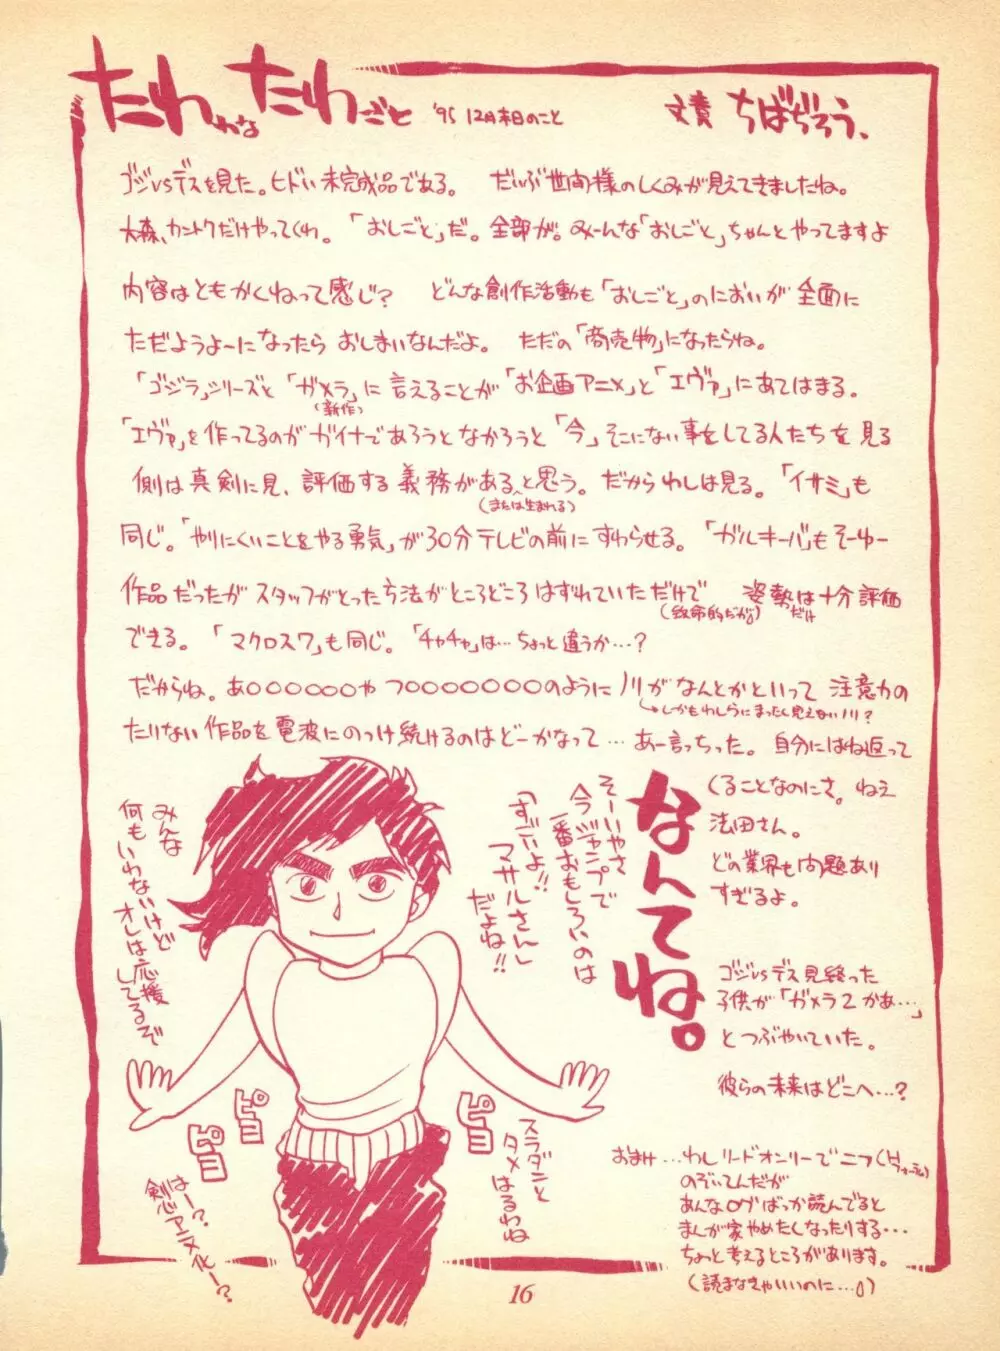 たわわな たわごと '95 12月末日のこと 文責 ちばぢろう、
ゴジvsデスを見た。ヒドい未完成品である。 だいぶ世間様のしくみが見えてきましたね。
大森、カントクだけやってくれ。「おしごと」だ。全部が。みーんな「おしごと」ちゃんとやってますよ
内容はともかくねって感じ? どんな創作活動も「おしごと」のにおいが全面に
ただようよーになったら おしまいなんだよ。 ただの「商売物」になったらね。
「ゴジラ」シリーズと「ガメラ」に言えることが「お企画アニメ」と「エヴァ」にあてはまる。
(新作)
「エヴァ」を作ってるのがガイナであろうとなかろうと「今」そこにない事をしてる人たちを見る
側は真剣に見、評価する義務があると思う。だからわしは見る。「イサミ」も
(または生まれる)
同じ。「やりにくいことをやる勇気」が30分テレビの前にすわらせる。「ガルキーバ」もそーゆー
作品だったがスタッフがとった方法がところどころはずれていただけで 姿勢は十分評価
(致命的だが。) だけ
できる。「マクロス7」も同じ。「チャチャ」は…ちょっと違うか…?
だからね。あ○○○○○○やつ○○○○○○○のようにノリがなんとかといって注意力の
しかもわしらにまったく見えないノリ?
たりない作品を電波にのっけ続けるのはどーかなって…あー言っちった。自分にはね返って
くることなのにさ。ねえ
法田さん。
どの業界も問題あり
すぎるよ。
なんてね。
ゴジvsデス見終った
子供が「ガメラ2かあ…」
とつぶやいていた。
彼らの未来はどこへ…?
そーいやさ
今ジャンプで
一番おもしろいのは
「すごいよ!!
マサルさん」
だよね!!
みんな
何もいわないけど
オレは応援
してるぞ
ピヨ
ピヨ
ピヨ
スラダンと
タメはるわね
はー?
剣心アニメ化ー?
おまけ…わしリードオンリーでニフ(Hフォーラム)
のぞいてんだが
あんなログばっか読んでると
まんが家やめたくなったりする…
ちょっと考えるところがあります。
(読まなきゃいいのに…。)
16